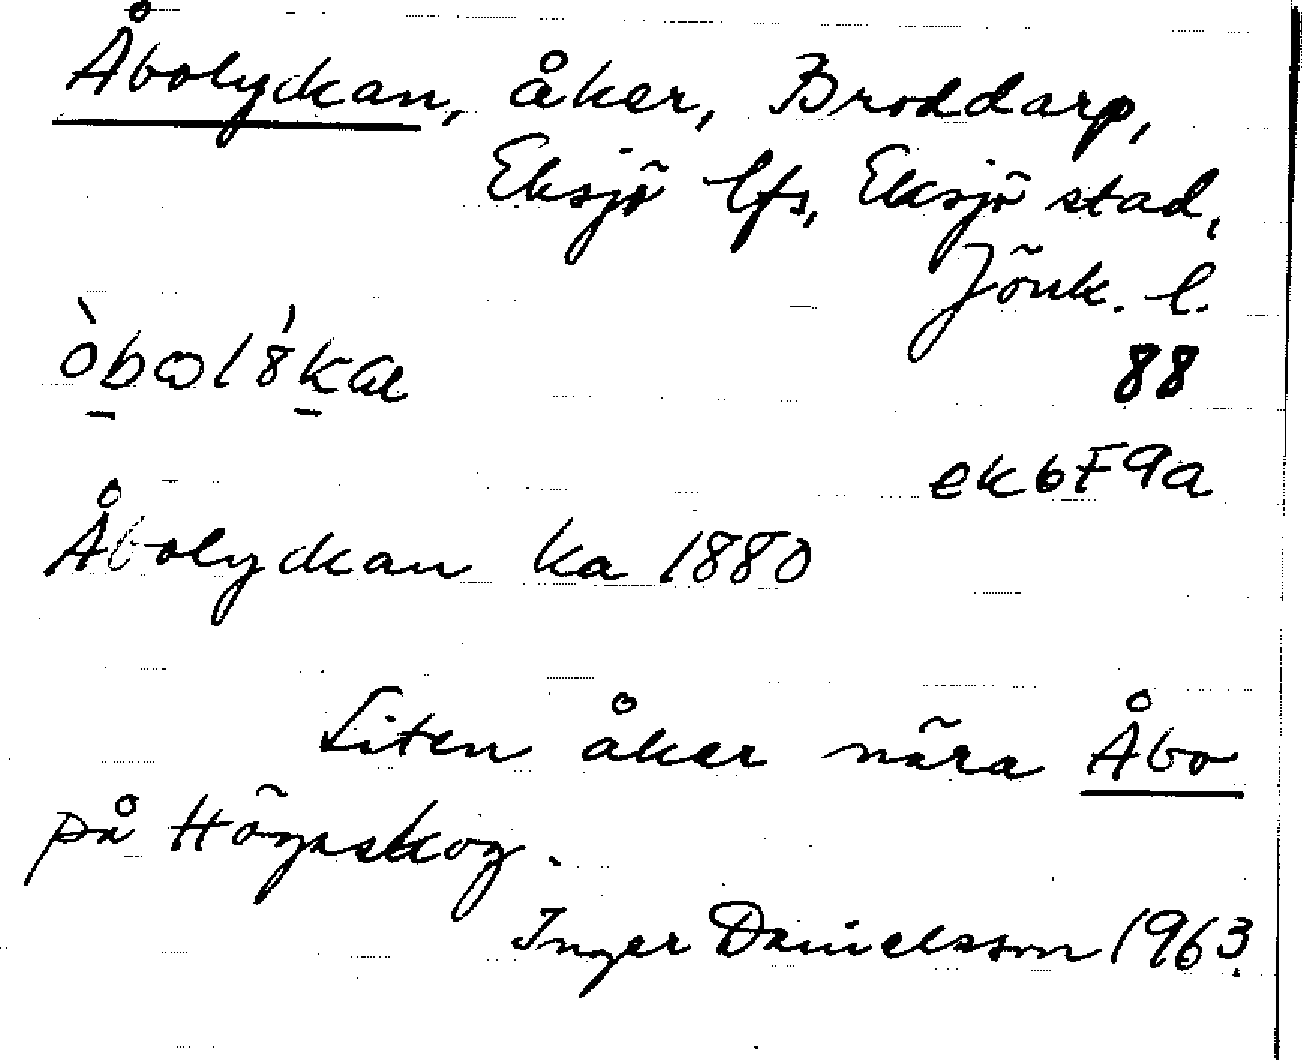 Åbolyckan, åker, Broddarp,
Eksjö lfs, Eksjö stad,
Jönk. l.
88
ek 6F9a
Åbolyckan ka 1880
Liten åker nära Åbo
på Högaskog.
Inger Danielsson 1963.